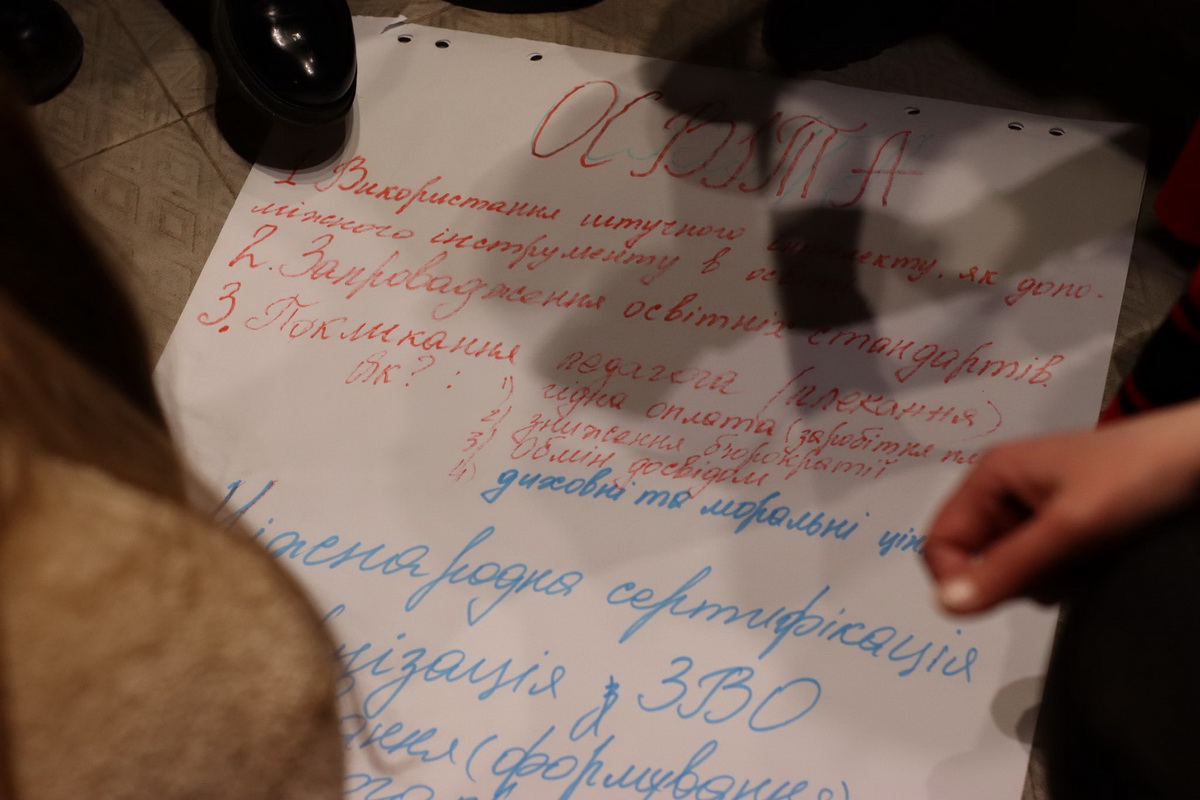 ОСВІТА
1 Використання штучного інтелекту, як допо-
міжного інструменту в
2. Запровадження освітніх стандартів.
3. Покликання педагога (плекання)
Як? : 1) гідна оплата (заробітня
2) зниження бюрократії
3) Обмін досвідом
4) духовні та моральні
Міжнародна сертифікація
ЗВО
(формування)